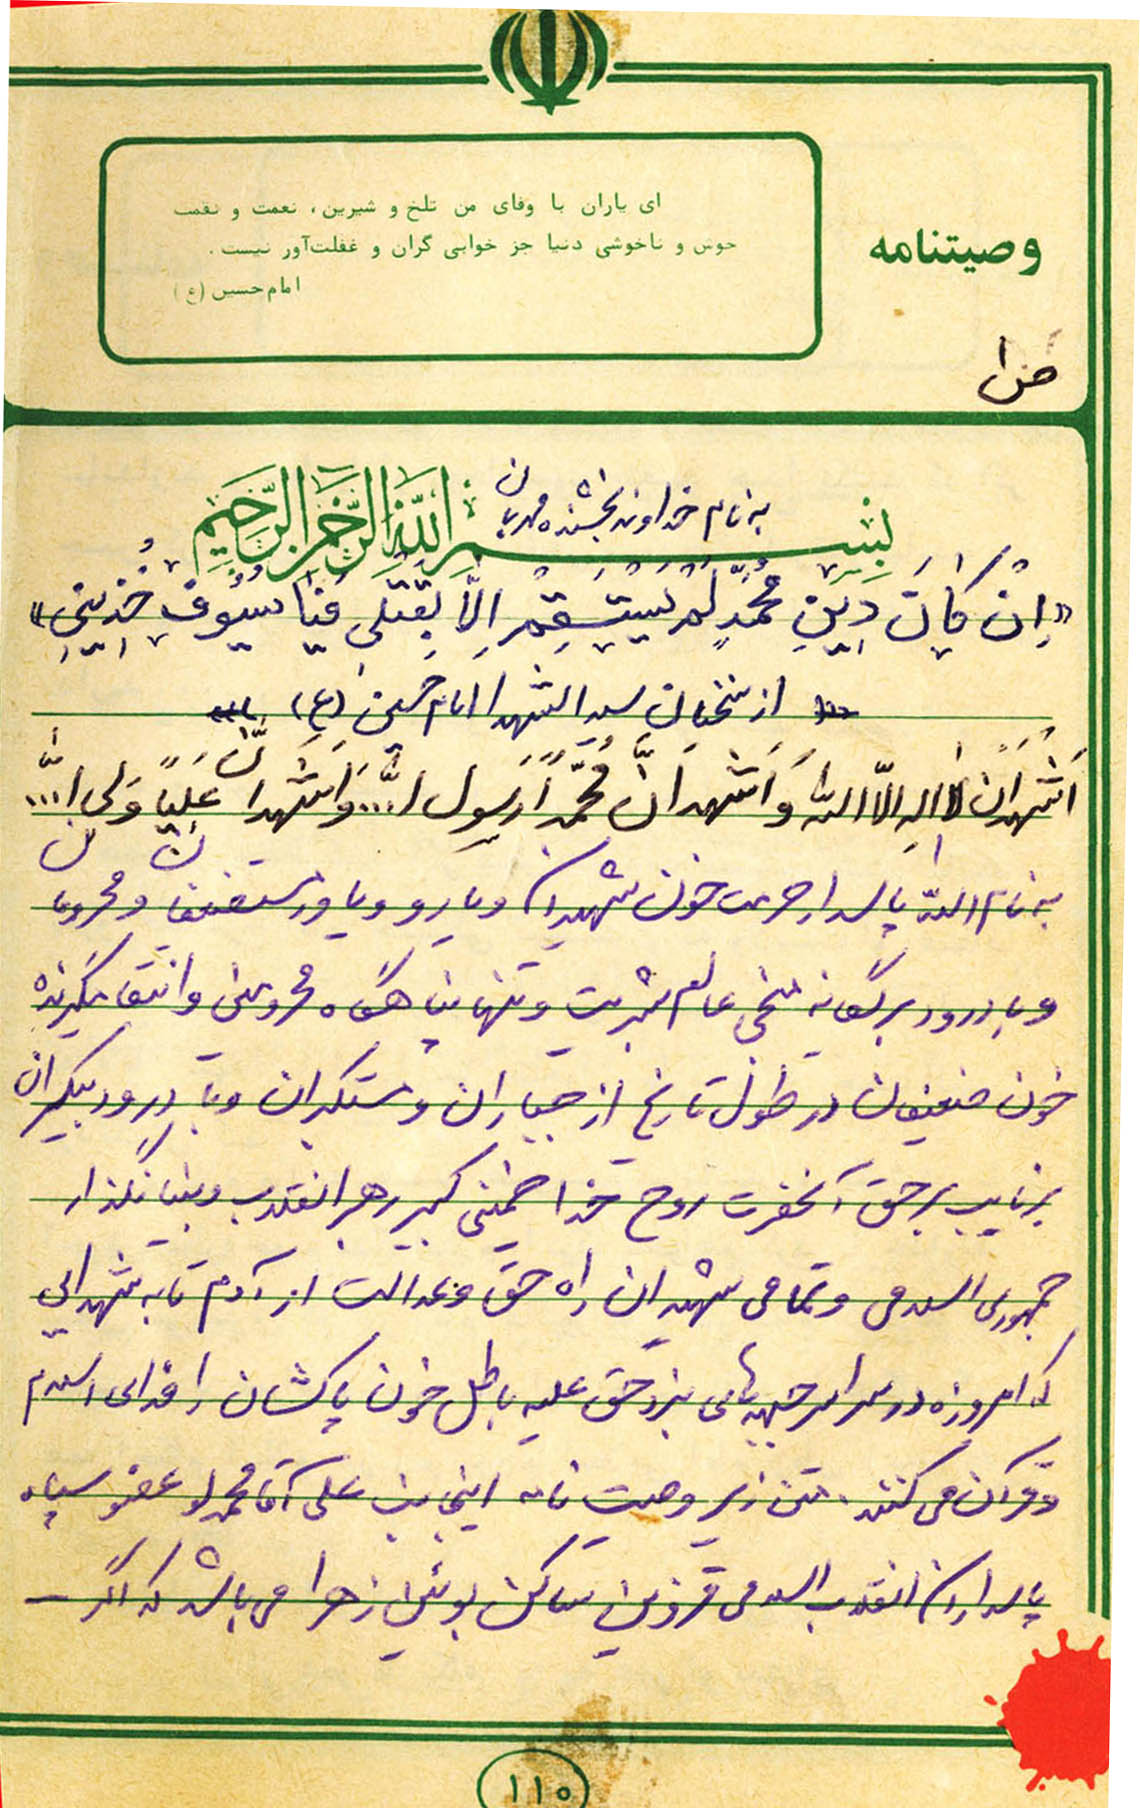 وصیتنامه
ای یاران با وفای من تلخ و شیرین ، نعمت و نقمت
خوش و ناخوشی دنیا جز خوابی گران و غفلت‌آور نیست .
امام حسین (ع)
بِسْمِ اللهِ الرَّحْمنِ الرَّحِیمِ
به نام خداوند بخشنده مهربان
«اِنْ کٰانَ دِینِ مُحَمَّدٍ لَمْ یَسْتَقِمْ اِلّا بِقَتْلِی فَیٰا سُیُوفُ خُذِینِی»
از سخنان سید الشهدا امام حسین (ع)
اَشْهَدُ اَن لا اله الّا اللّه وَ اَشْهَدُ اَنَّ مُحَمَّداً رَسول ا... وَ اَشْهَدُ اَنَّ عَلیاً وَلی ا...
به نام الله پاسدار حرمت خون شهیدان و یارو و یاور مستضعفان و محرومان
و با درود بر یگانه منجی عالم بشریت و تنها پناهگاه محرومین و انتقام گیرنده
خون ضعیفان در طول تاریخ از جباران و مستکبران و با درود بیکران
بر نایب بر حق آنحضرت روح خدا خمینی کبیر رهبر انقلاب و بنیانگذار
جمهوری اسلامی و تمامی شهیدان راه حق و عدالت از آدم تا به شهدایی
که امروزه در سراسر جبهه‌های نبرد حق علیه باطل خون پاکشان را فدای اسلام
و قرآن می کنند . متن زیر وصیت نامه اینجانب علی آقا محمدلو عضو سپاه
پاسداران انقلاب اسلامی قزوین ساکن بوئین زهرا می باشد که اگر —
۱۱۰